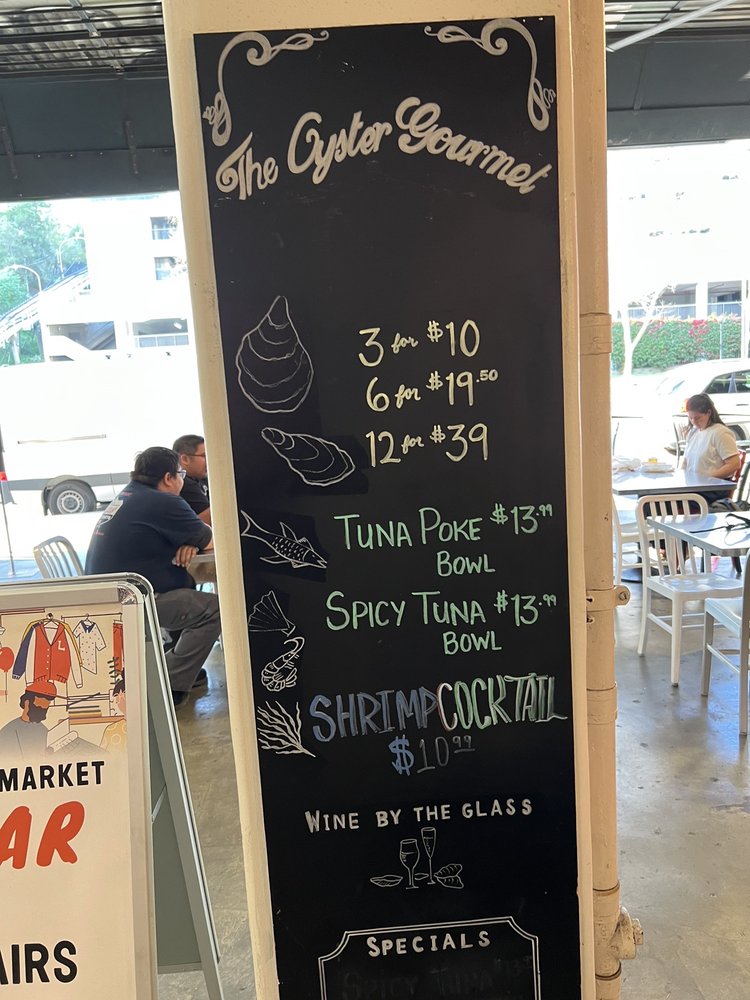 The Oyster Gourmet
3 for $10
6 for $19.50
12 for $39
TUNA POKE $13.99
BOWL
SPICY TUNA $13.99
BOWL
SHRIMP COCKTAIL
$10.99
WINE BY THE GLASS
SPECIALS
SPICY TUNA
MARKET
AR
AIRS